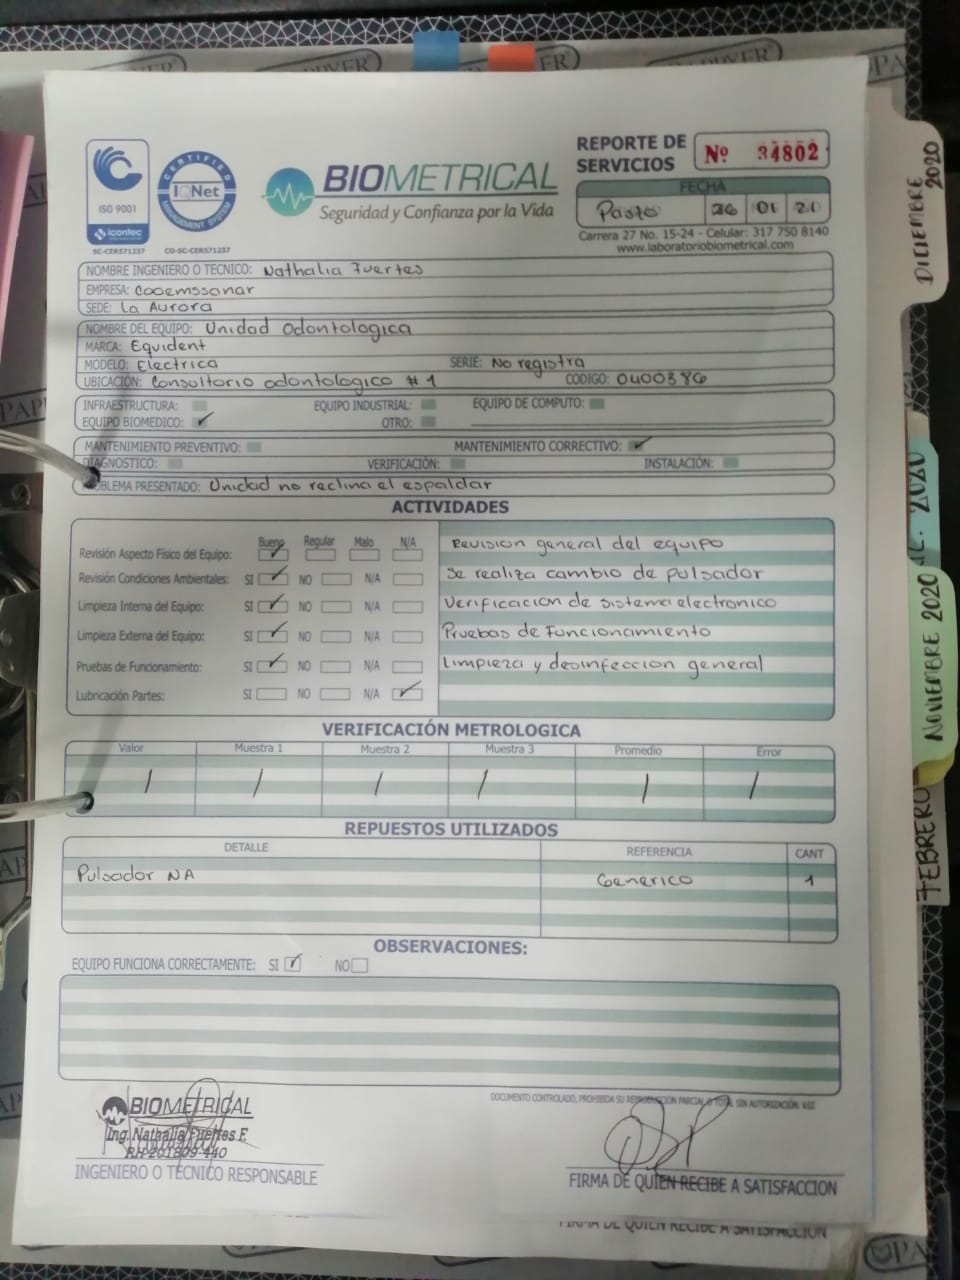 PAPYVER
ER
DICIEMBRE 2020
ISO 9001
icontec
SC-CER571237
CERTIFIED
IQNet
MANAGEMENT SYSTEM
CO-SC-CER571237
BIOMETRICAL
Seguridad y Confianza por la Vida
REPORTE DE SERVICIOS
Nº 34802
FECHA
Pasto 26 01 21
Carrera 27 No. 15-24 - Celular: 317 750 8140
www.laboratoriobiometrical.com
NOMBRE INGENIERO O TECNICO: Nathalia Fuertes
EMPRESA: Cooemssanar
SEDE: La Aurora
NOMBRE DEL EQUIPO: Unidad Odontologica
MARCA: Equident
MODELO: Electrica SERIE: No registra
UBICACIÓN: Consultorio odontologico #1 CÓDIGO: 0400386
INFRAESTRUCTURA: EQUIPO INDUSTRIAL: EQUIPO DE COMPUTO:
EQUIPO BIOMEDICO: ✓ OTRO:
MANTENIMIENTO PREVENTIVO: MANTENIMIENTO CORRECTIVO: ✓
DIAGNOSTICO: VERIFICACIÓN: INSTALACIÓN:
PROBLEMA PRESENTADO: Unidad no reclina el espaldar
ACTIVIDADES
Bueno Regular Malo N/A
Revisión Aspecto Físico del Equipo: ✓
Revisión Condiciones Ambientales: SI ✓ NO N/A
Limpieza Interna del Equipo: SI ✓ NO N/A
Limpieza Externa del Equipo: SI ✓ NO N/A
Pruebas de Funcionamiento: SI ✓ NO N/A
Lubricación Partes: SI NO N/A ✓
Revision general del equipo
Se realiza cambio de pulsador
Verificacion de sistema electronico
Pruebas de Funcionamiento
Limpieza y desinfeccion general
VERIFICACIÓN METROLOGICA
Valor Muestra 1 Muestra 2 Muestra 3 Promedio Error
/ / / / / /
REPUESTOS UTILIZADOS
DETALLE REFERENCIA CANT
Pulsador NA Generico 1
OBSERVACIONES:
EQUIPO FUNCIONA CORRECTAMENTE: SI ✓ NO
DOCUMENTO CONTROLADO, PROHIBIDA SU REPRODUCCIÓN PARCIAL O TOTAL SIN AUTORIZACIÓN.
BIOMETRICAL
Ing. Nathalia Fuertes F.
RH-201809-440
INGENIERO O TÉCNICO RESPONSABLE
FIRMA DE QUIEN RECIBE A SATISFACCION
FIRMA DE QUIEN RECIBE A SATISFACCION
2020
NOVIEMBRE 2020
FEBRERO